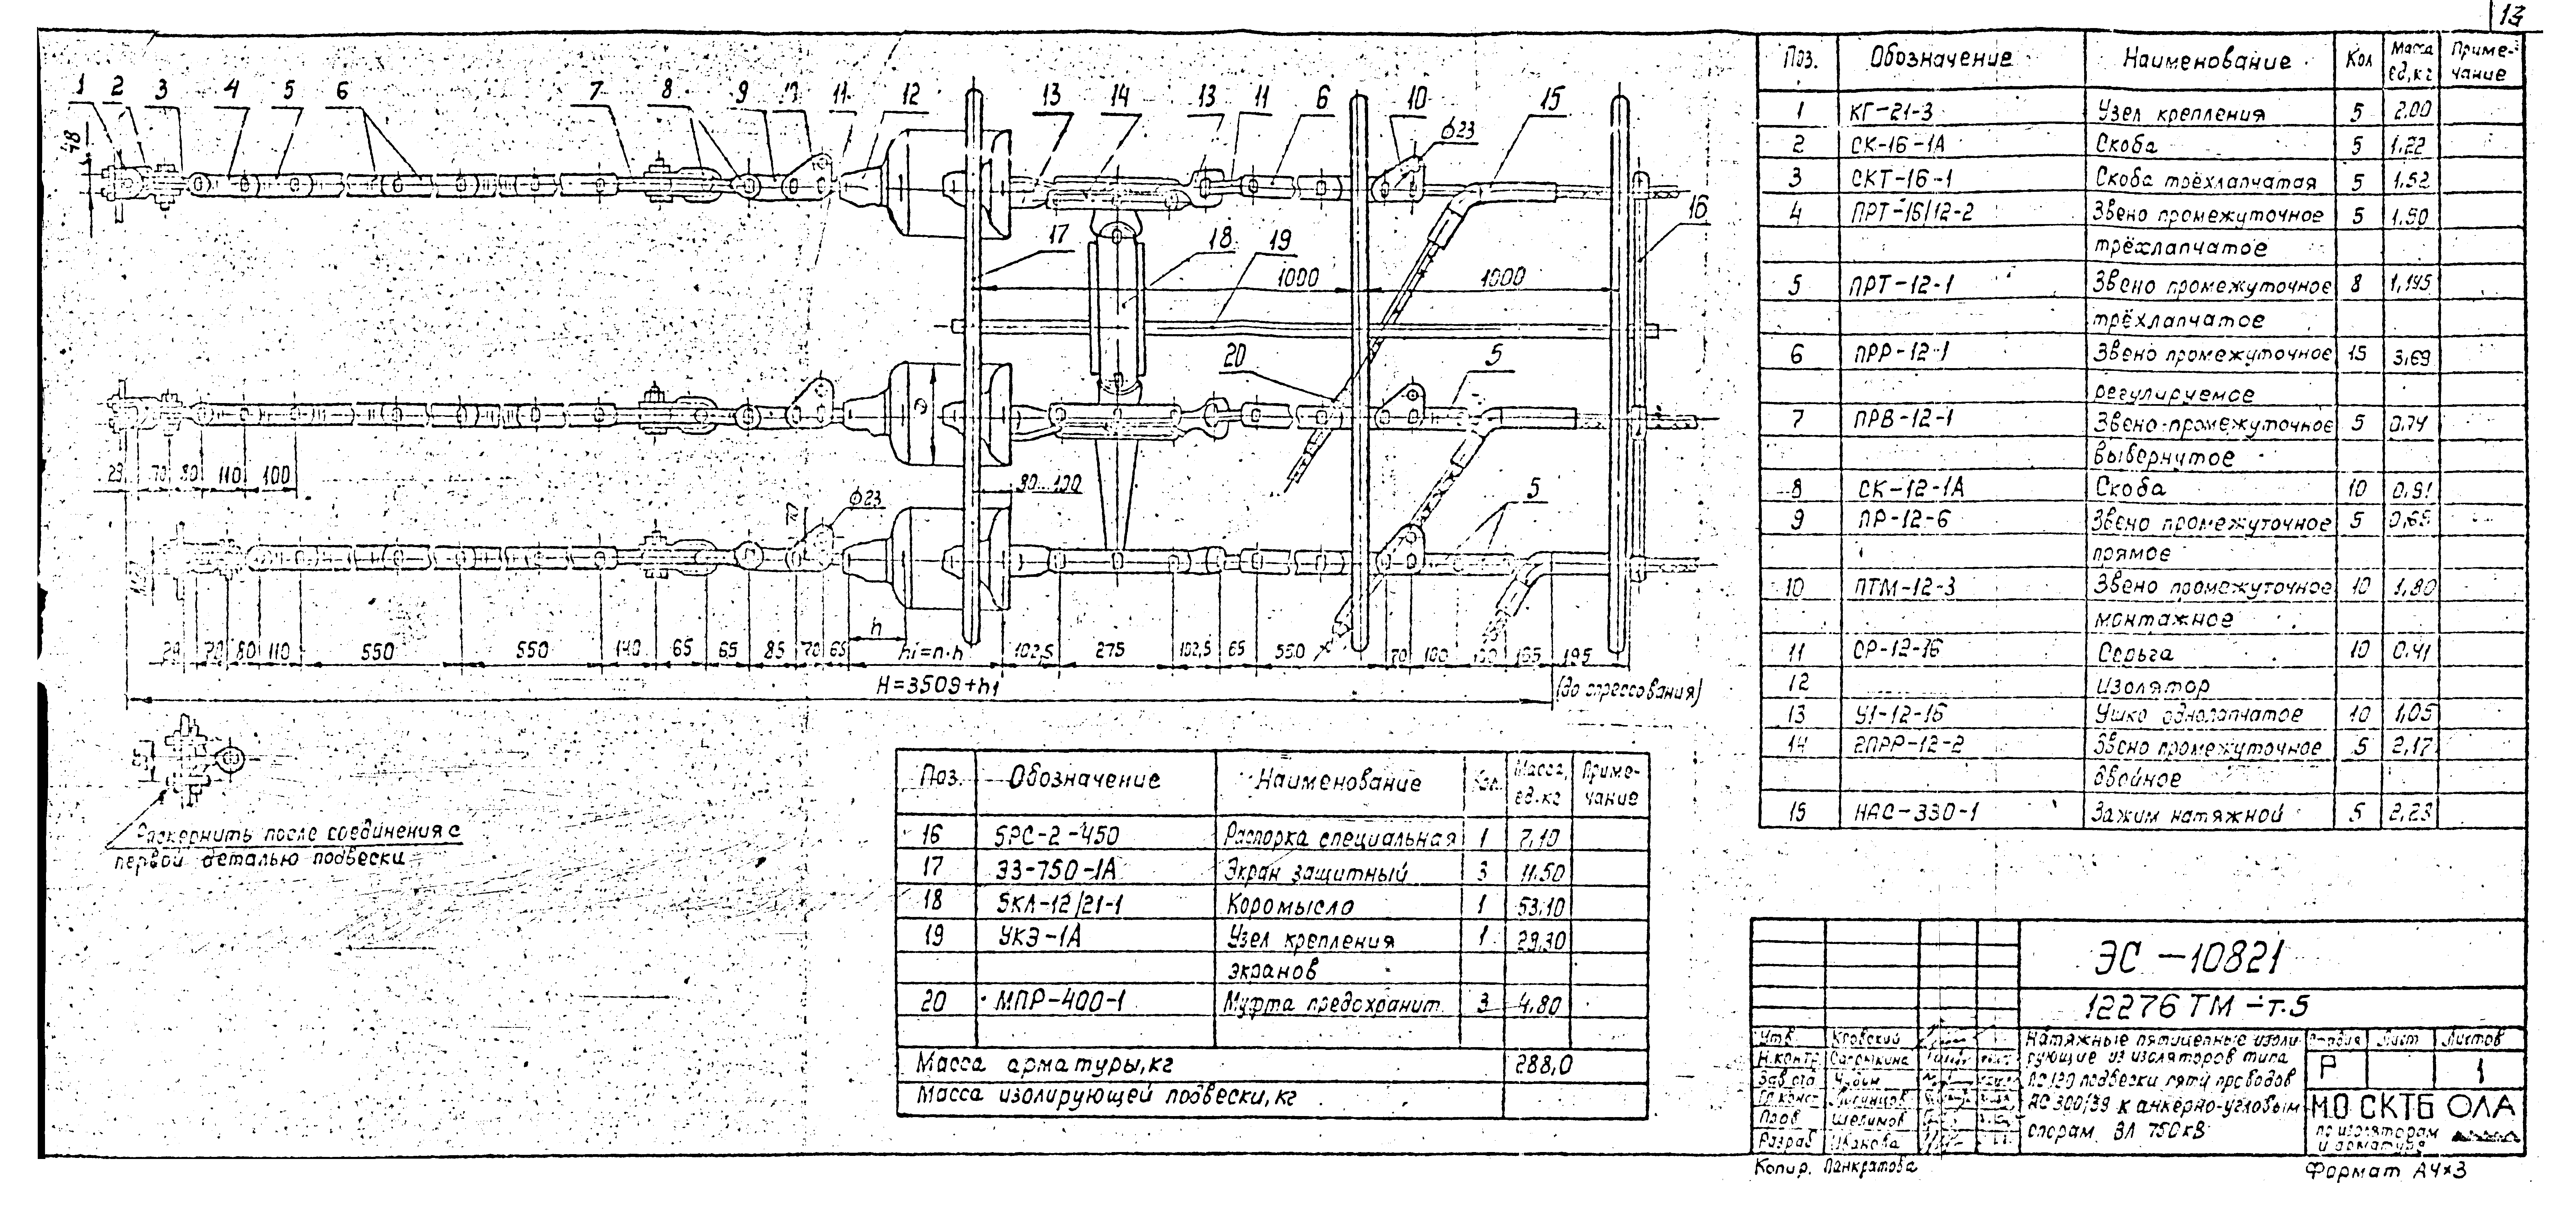 13
1 2 3 4 5 6 7 8 9 11 12 13 14 13 11 6 10 15
48
φ23
16
17 18 19
1000 1000
20 5
70 80 110 100
φ23
80...100
5
70 80 110 550 550 140 65 65 85 70 65 h h₁=n·h 102,5 275 102,5 65 550 70 100 165 195
H=3509+h₁ (до опрессования)
Раскернить после соединения с
первой деталью подвески
Поз. Обозначение Наименование Кол Масса ед,кг Приме-чание
1 КГ-21-3 Узел крепления 5 2.00
2 СК-16-1А Скоба 5 1,22
3 СКТ-16-1 Скоба трёхлапчатая 5 1.52
4 ПРТ-16/12-2 Звено промежуточное 5 1.50
трёхлапчатое
5 ПРТ-12-1 Звено промежуточное 8 1,145
трёхлапчатое
6 ПРР-12-1 Звено промежуточное 15 3,69
регулируемое
7 ПРВ-12-1 Звено промежуточное 5 0,74
вывернутое
8 СК-12-1А Скоба 10 0,91
9 ПР-12-6 Звено промежуточное 5 0,65
прямое
10 ПТМ-12-3 Звено промежуточное 10 1,80
монтажное
11 СР-12-16 Серьга 10 0,41
12 Изолятор
13 У1-12-16 Ушко однолапчатое 10 1,05
14 2ПРР-12-2 Звено промежуточное 5 2,17
двойное
15 НАС-330-1 Зажим натяжной 5 2,23
Поз. Обозначение Наименование Кол. Масса, ед.кг Приме-чание
16 5РС-2-450 Распорка специальная 1 7,10
17 ЭЗ-750-1А Экран защитный 3 11.50
18 5КЛ-12/21-1 Коромысло 1 53,10
19 УКЭ-1А Узел крепления 1 29,30
экранов
20 МПР-400-1 Муфта предохранит. 3 4,80
Масса арматуры,кг 288,0
Масса изолирующей подвески,кг
ЭС-10821
12276ТМ-т.5
Утв.
Н.контр
Пров. Шелимов
Разраб Иванова
Натяжные пятицепные изоли-
рующие из изоляторов типа
ПС120 подвески пяти проводов
АС300/39 к анкерно-угловым
опорам ВЛ 750кВ
Стадия Лист Листов
Р 1
МО СКТБ ОЛА
по изоляторам
и арматуре
Копир. Панкратова
Формат А4×3